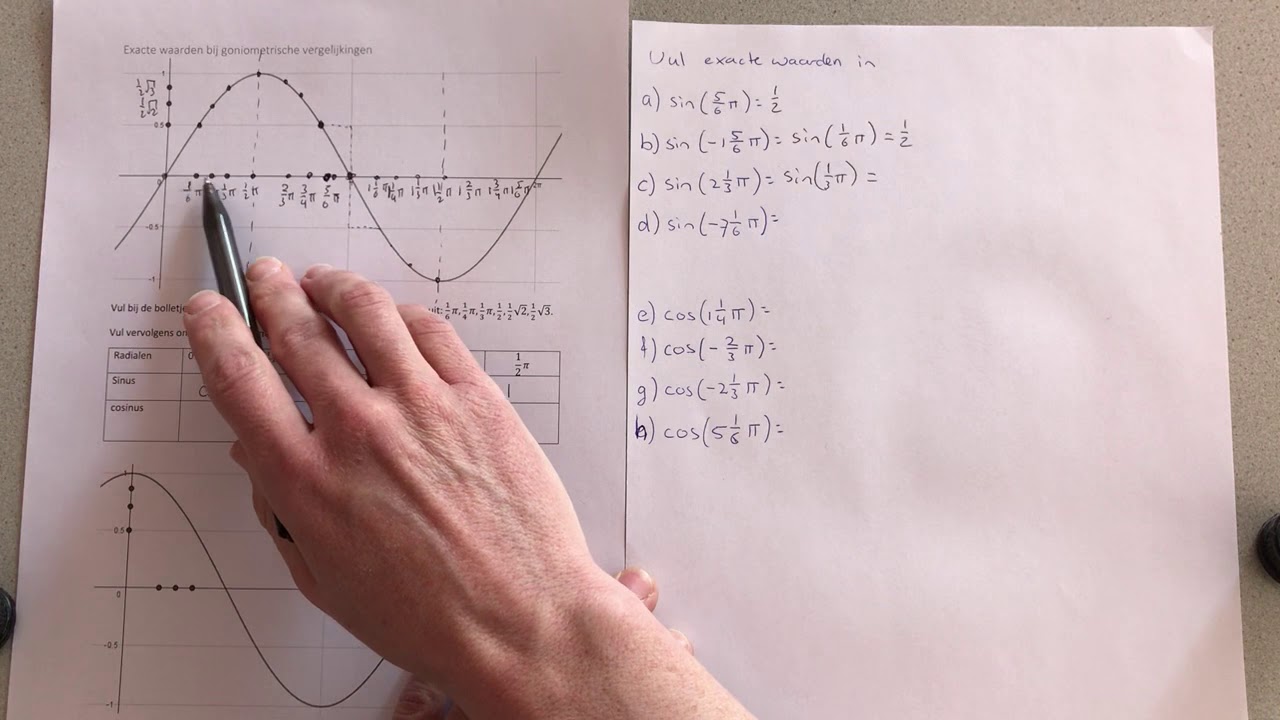 Exacte waarden bij goniometrische vergelijkingen
1
½√3
½√2
0.5
0
1/6 π 1/3 π 1/2 π 2/3 π 3/4 π 5/6 π 1 1/6 π 1 1/4 π 1 1/3 π 1 1/2 π 1 2/3 π 1 3/4 π 1 5/6 π 2π
-0.5
-1
Vul bij de bolletje uit: 1/6 π, 1/4 π, 1/3 π, 1/2, 1/2 √2, 1/2 √3.
Vul vervolgens
Radialen 0 1/2 π
Sinus 0 1
cosinus
1
0.5
0
-0.5
-1
Vul exacte waarden in
a) sin(5/6 π) = 1/2
b) sin(-1 5/6 π) = sin(1/6 π) = 1/2
c) sin(2 1/3 π) = sin(1/3 π) =
d) sin(-7 1/6 π) =
e) cos(1 1/4 π) =
f) cos(- 2/3 π) =
g) cos(-2 1/3 π) =
h) cos(5 1/6 π) =